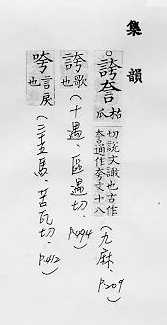 集韻
。誇夸 枯瓜切說文譀也古作夸通作夸文十八（九麻．P.209）
誇 歌也（十遇．區遇切．P.494）
咵 言戾也（三五馬．苦瓦切．P.412）